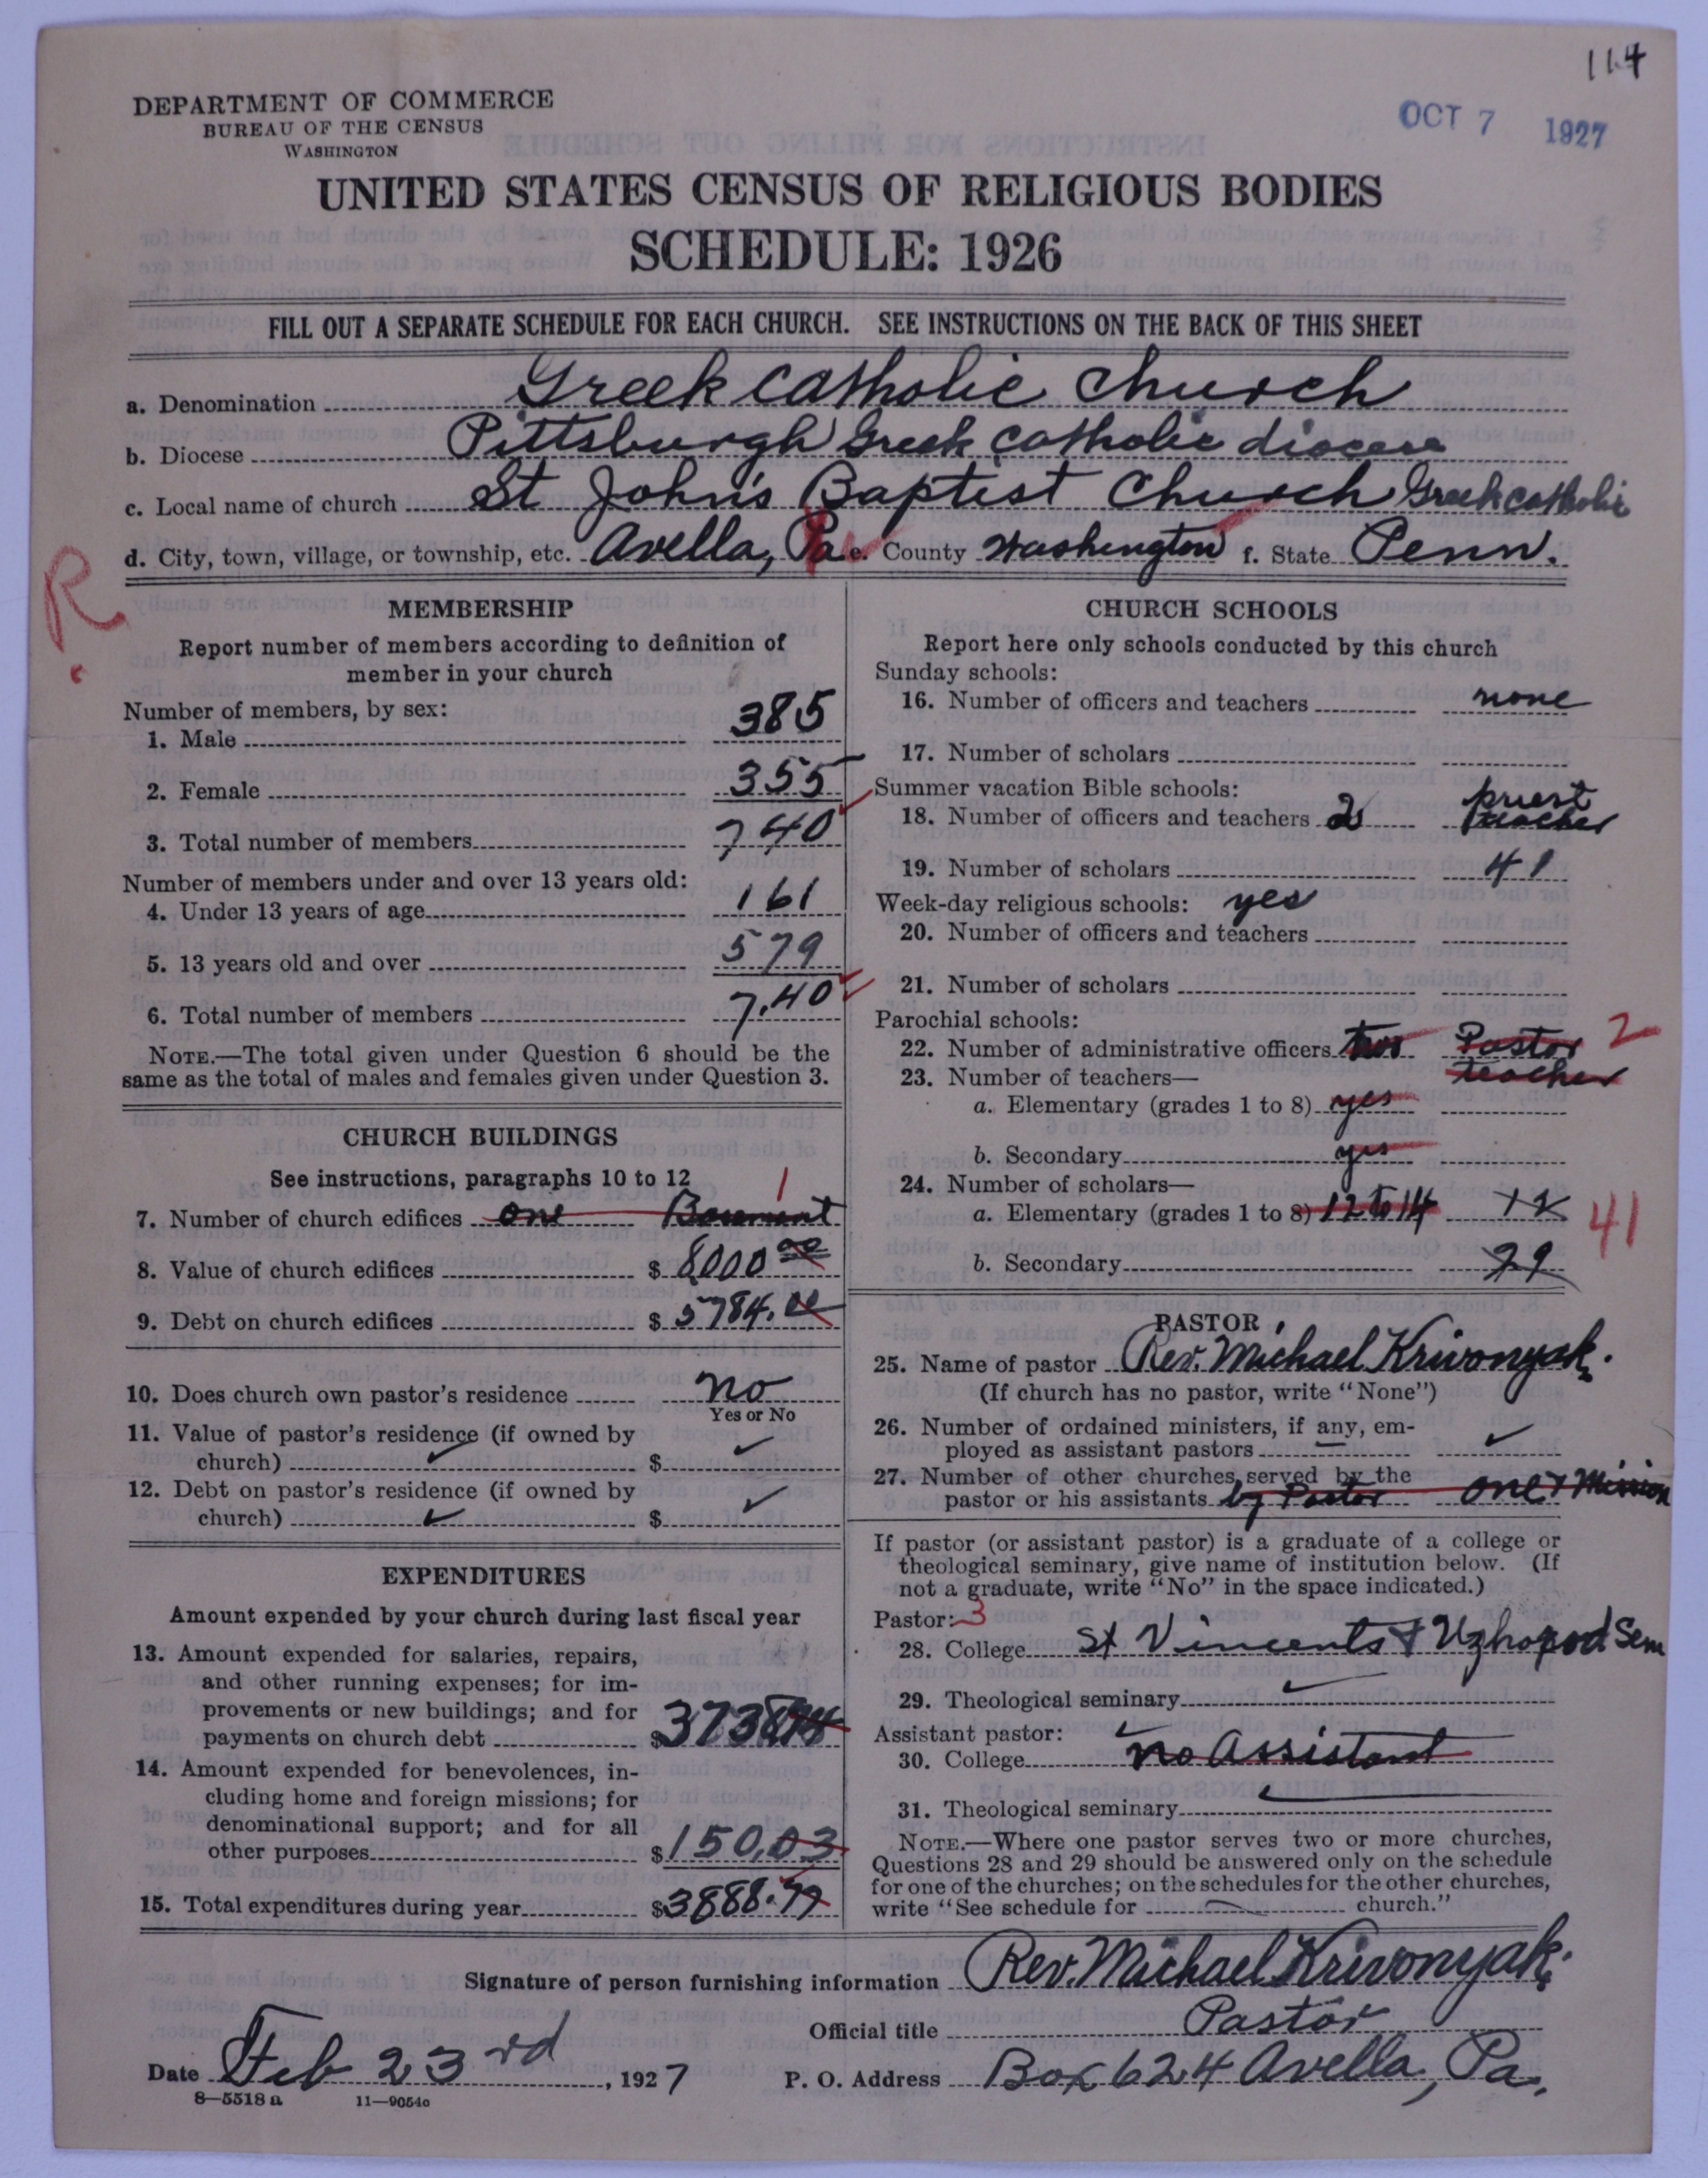 114
OCT 7 1927
DEPARTMENT OF COMMERCE
BUREAU OF THE CENSUS
WASHINGTON
UNITED STATES CENSUS OF RELIGIOUS BODIES
SCHEDULE: 1926
FILL OUT A SEPARATE SCHEDULE FOR EACH CHURCH. SEE INSTRUCTIONS ON THE BACK OF THIS SHEET
a. Denomination Greek Catholic Church
b. Diocese Pittsburgh Greek Catholic diocese
c. Local name of church St John's Baptist Church Greek catholic
d. City, town, village, or township, etc. Avella, Pa e. County Washington f. State Penn.
R.
MEMBERSHIP
Report number of members according to definition of
member in your church
Number of members, by sex:
1. Male 385
2. Female 355
3. Total number of members 740
Number of members under and over 13 years old:
4. Under 13 years of age 161
5. 13 years old and over 579
6. Total number of members 7.40
NOTE.—The total given under Question 6 should be the
same as the total of males and females given under Question 3.
CHURCH BUILDINGS
See instructions, paragraphs 10 to 12 1
7. Number of church edifices one Basement
8. Value of church edifices $ 8000 00
9. Debt on church edifices $ 5784.
10. Does church own pastor's residence no
Yes or No
11. Value of pastor's residence (if owned by
church) ✓ $ ✓
12. Debt on pastor's residence (if owned by
church) ✓ $ ✓
EXPENDITURES
Amount expended by your church during last fiscal year
13. Amount expended for salaries, repairs,
and other running expenses; for im-
provements or new buildings; and for
payments on church debt $ 3738
14. Amount expended for benevolences, in-
cluding home and foreign missions; for
denominational support; and for all
other purposes $ 150.03
15. Total expenditures during year $ 3888.77
CHURCH SCHOOLS
Report here only schools conducted by this church
Sunday schools:
16. Number of officers and teachers none
17. Number of scholars
Summer vacation Bible schools: priest
18. Number of officers and teachers 2 teacher
19. Number of scholars 41
Week-day religious schools: yes
20. Number of officers and teachers
21. Number of scholars
Parochial schools:
22. Number of administrative officers two Pastor 2
23. Number of teachers— teacher
a. Elementary (grades 1 to 8) yes
b. Secondary yes
24. Number of scholars—
a. Elementary (grades 1 to 8) 12 to 14 12 41
b. Secondary 29
PASTOR
25. Name of pastor Rev. Michael Krivonyak.
(If church has no pastor, write "None")
26. Number of ordained ministers, if any, em-
ployed as assistant pastors ✓
27. Number of other churches served by the
pastor or his assistants by Pastor one & Mission
If pastor (or assistant pastor) is a graduate of a college or
theological seminary, give name of institution below. (If
not a graduate, write "No" in the space indicated.)
Pastor: 3
28. College St Vincents & Uzhorod Sem
29. Theological seminary ✓
Assistant pastor:
30. College no Assistant
31. Theological seminary ✓
NOTE.—Where one pastor serves two or more churches,
Questions 28 and 29 should be answered only on the schedule
for one of the churches; on the schedules for the other churches,
write "See schedule for church."
Signature of person furnishing information Rev. Michael Krivonyak.
Official title Pastor
Date Feb 23rd, 1927 P. O. Address Box 624 Avella, Pa.
8—5518 a 11—9054c